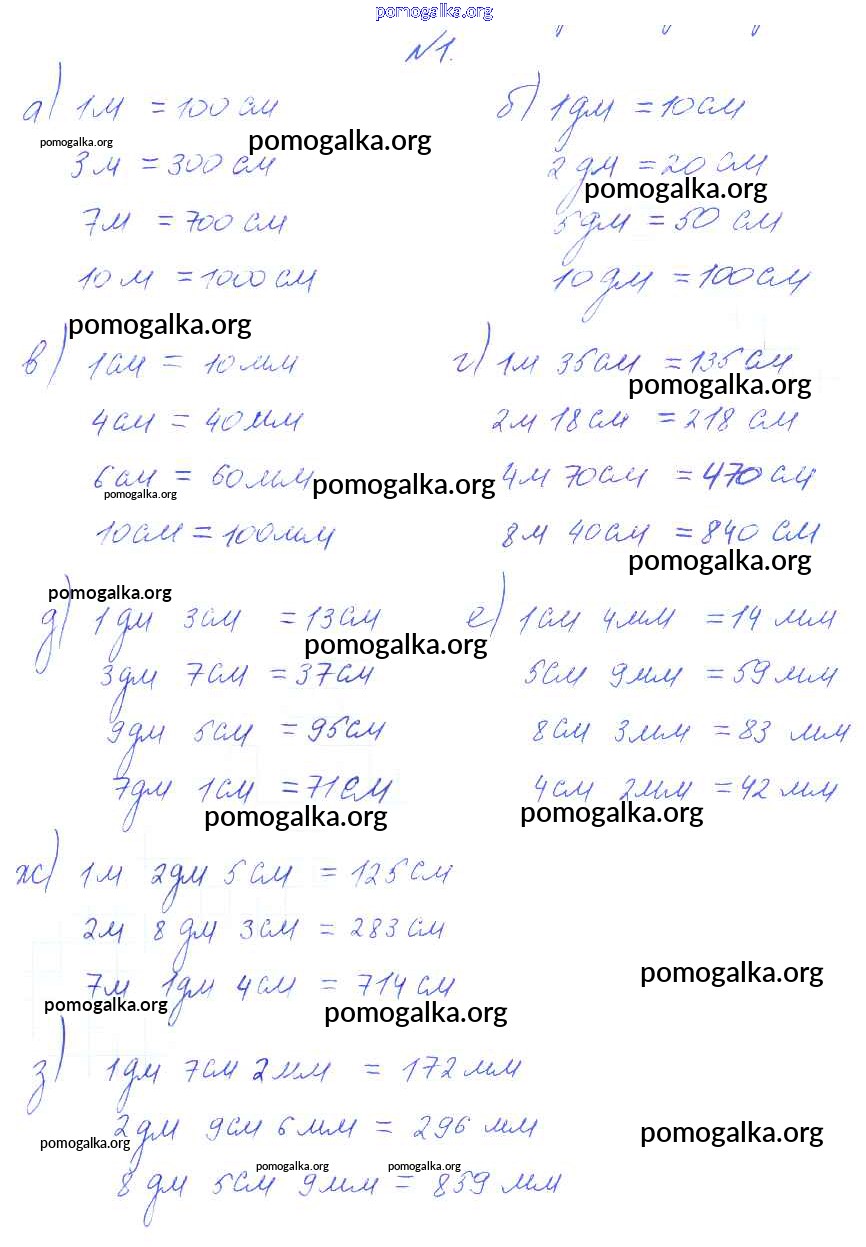 pomogalka.org
№1.
а) 1м = 100 см
б) 1дм = 10см
pomogalka.org
pomogalka.org
3м = 300 см
2 дм = 20 см
pomogalka.org
7м = 700 см
5дм = 50 см
10 м = 1000 см
10 дм = 100 см
pomogalka.org
в) 1см = 10 мм
г) 1м 35см = 135 см
pomogalka.org
4см = 40 мм
2м 18 см = 218 см
6см = 60 мм
pomogalka.org
4м 70см = 470 см
pomogalka.org
10см = 100мм
8м 40см = 840 см
pomogalka.org
pomogalka.org
д) 1 дм 3см = 13 см
е) 1см 4мм = 14 мм
pomogalka.org
3дм 7см = 37см
5см 9мм = 59 мм
9дм 5см = 95см
8см 3мм = 83 мм
7дм 1см = 71см
4см 2мм = 42 мм
pomogalka.org
pomogalka.org
ж) 1м 2дм 5см = 125 см
2м 8 дм 3см = 283 см
pomogalka.org
7м 1дм 4см = 714 см
pomogalka.org
pomogalka.org
з) 1дм 7см 2мм = 172 мм
2дм 9см 6 мм = 296 мм
pomogalka.org
pomogalka.org
pomogalka.org
pomogalka.org
8 дм 5см 9мм = 859 мм